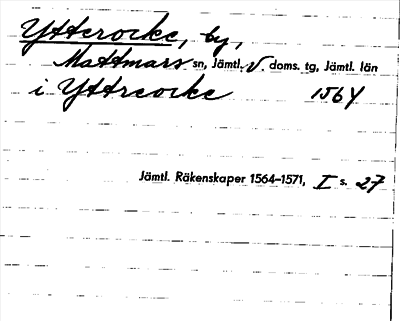 Ytterocke, by,
Mattmars sn, Jämtl. V. doms. tg, Jämtl. län
i Yttreocke 1564
Jämtl. Räkenskaper 1564–1571, I s. 27